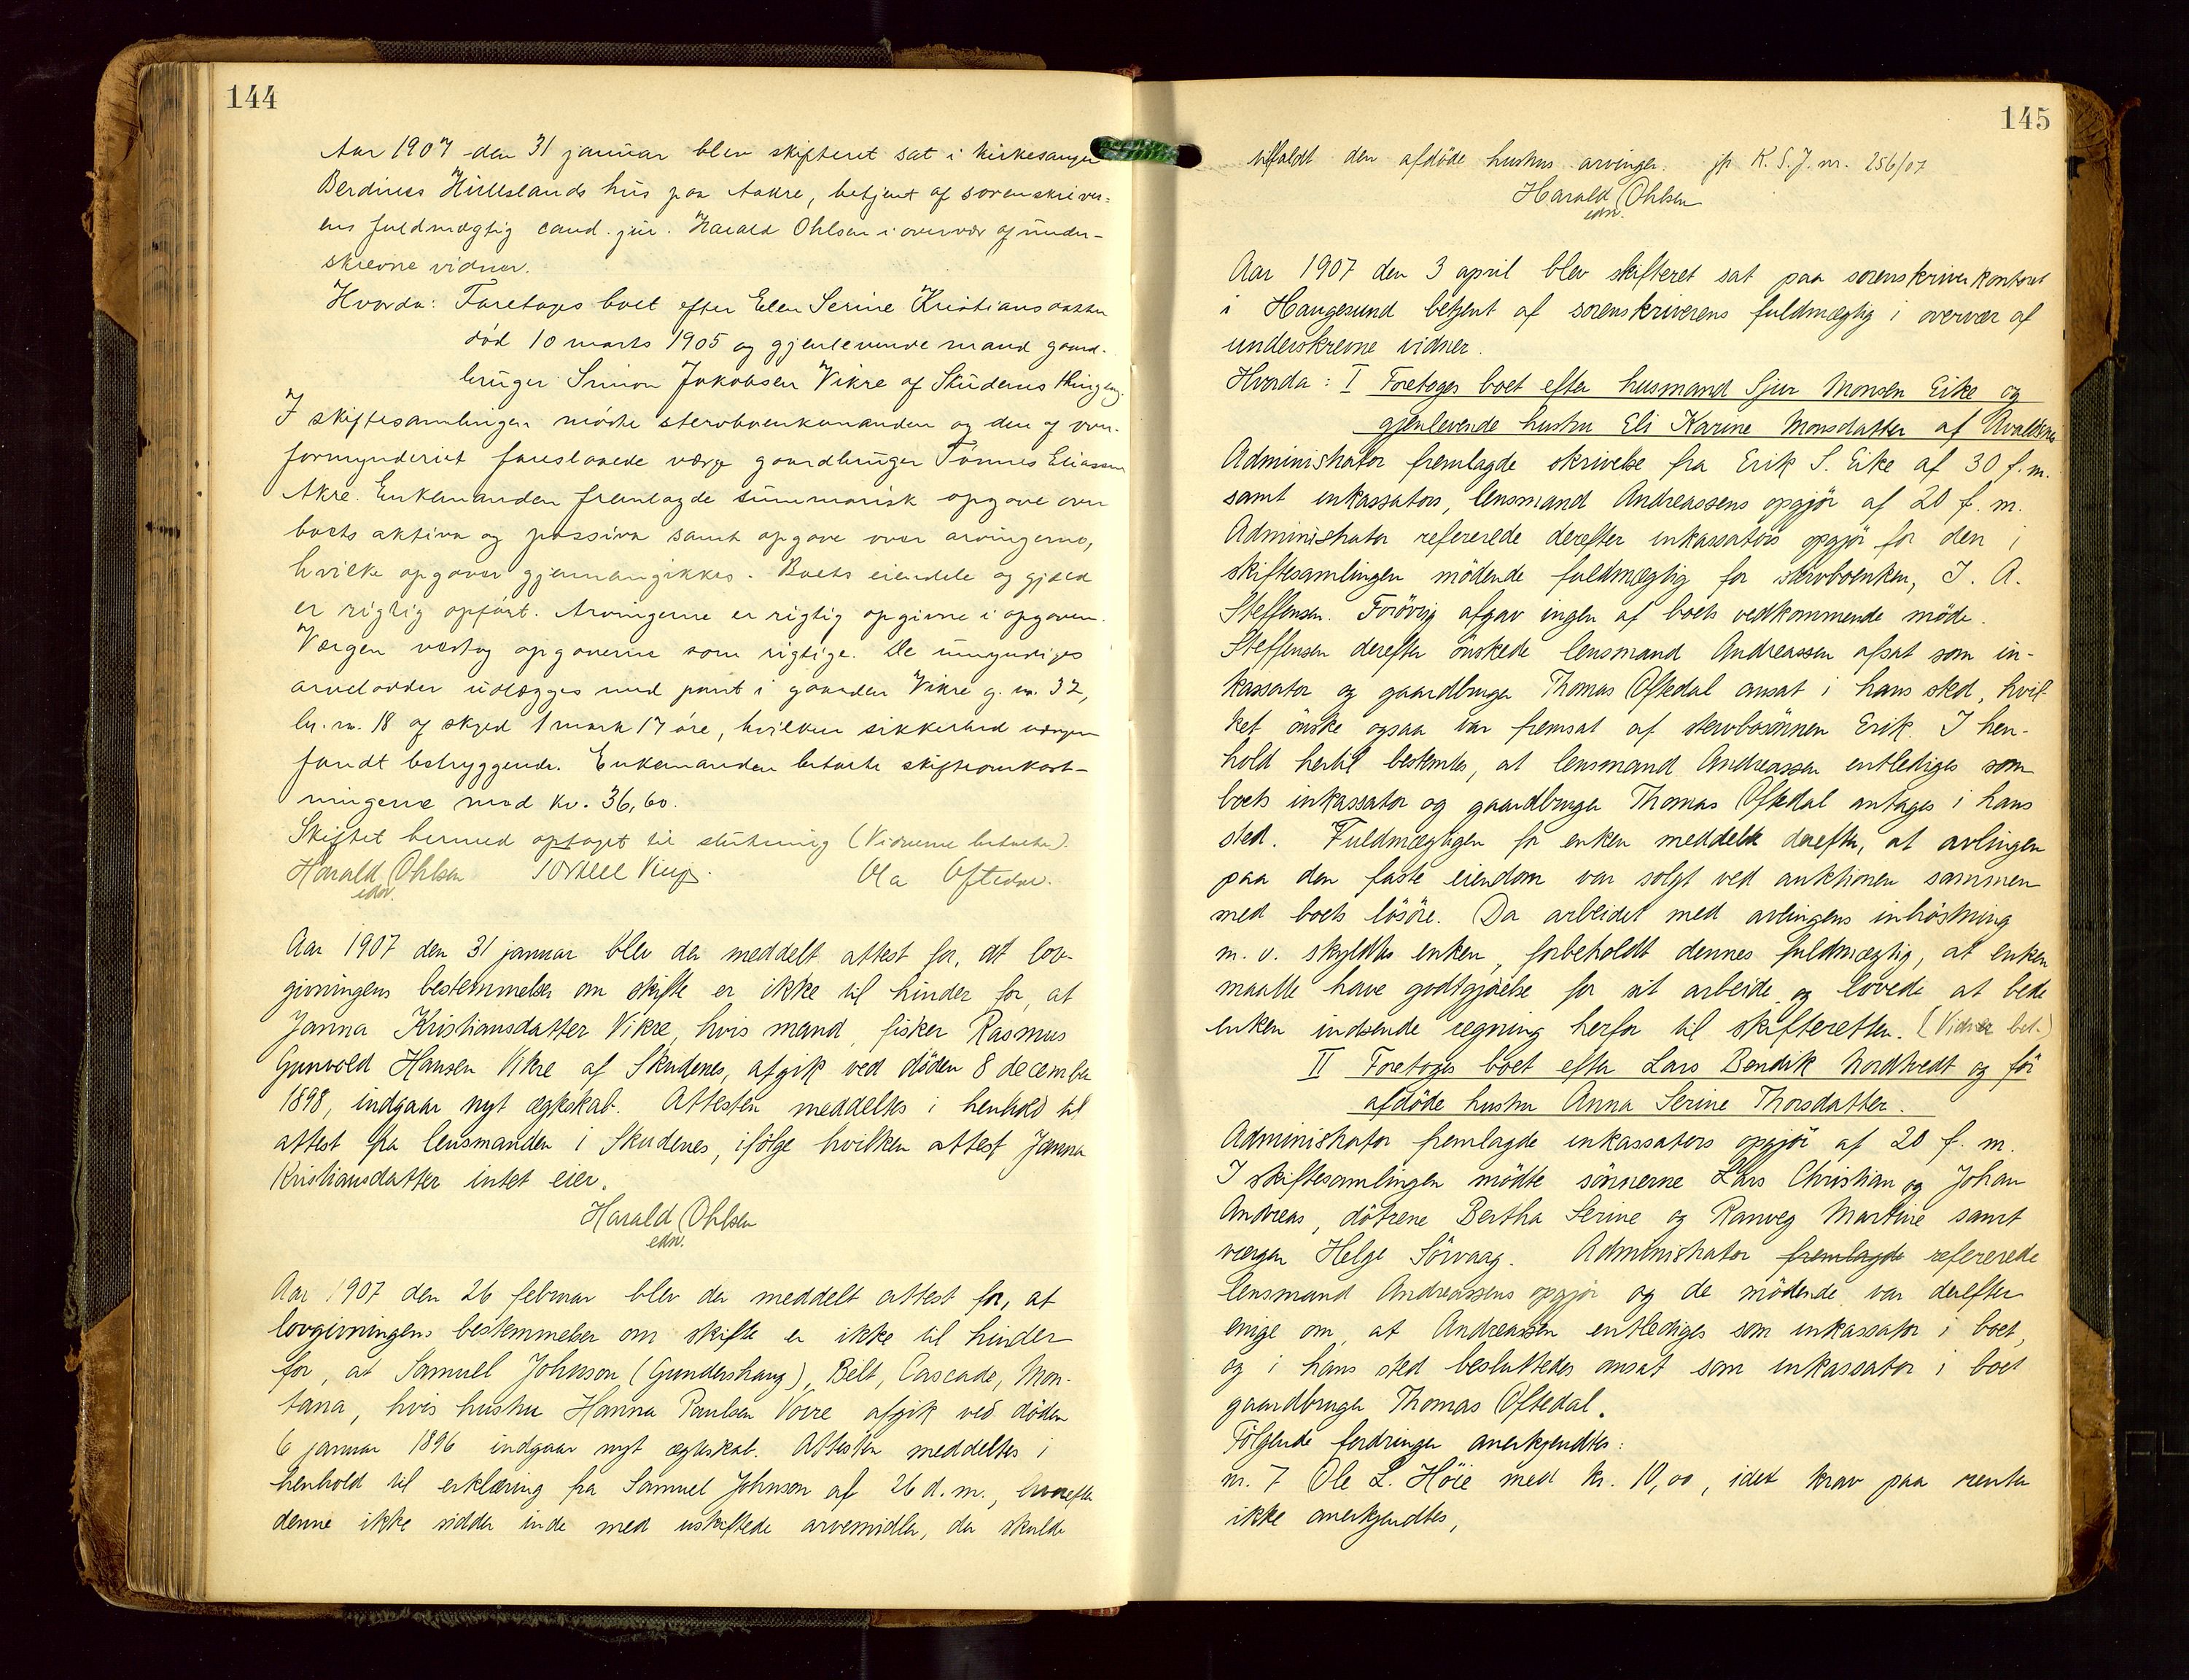 144
Aar 1907 den 31 januar blev skifteret sat i kirkesanger
Berdines Hillelands hus paa Aakre, betjent af sorenskriver-
ens fuldmægtig cand. jur. Harald Ohlsen i overvær af under-
skrevne vidner.
Hvorda: Foretages boet efter Elen Serine Kristiansdatter
død 10 marts 1905 og gjenlevende mand gaard-
bruger Simon Jakobsen Vikre af Skudenes thinglag.
I skiftesamlingen mødte stervboenkemanden og den af over-
formynderiet foreslaaede værge gaardbruger Tønnes Eliassen
Akre. Enkemanden fremlagde summarisk opgave over
boets aktiva og passiva samt opgave over arvingerne,
hvilke opgaver gjennemgikkes. Boets eiendele og gjæld
er rigtig opført. Arvingerne er rigtig opgivne i opgaven.
Værgen vedtog opgaverne som rigtige. De umyndiges
arvelodder udlægges med pant i gaarden Vikre g. nr. 32,
br. nr. 18 af skyld 1 mark 17 øre, hvilken sikkerhed værgen
fandt betryggende. Enkemanden betalte skifteomkost-
ningerne med kr. 36,60.
Skiftet hermed optaget til slutning (Vidnerne betalte).
Harald Ohlsen Torkell Vinje. Ola Oftedal.
edv.
Aar 1907 den 31 januar blev der meddelt attest for, at lov-
givningens bestemmelser om skifte er ikke til hinder for, at
Janna Kristiansdatter Vikre, hvis mand, fisker Rasmus
Gunvald Hansen Vikre af Skudenes, afgik ved døden 8 december
1898, indgaar nyt ægteskab. Attesten meddeltes i henhold til
attest fra lensmanden i Skudenes, ifølge hvilken attest Janna
Kristiansdatter intet eier.
Harald Ohlsen
edv.
Aar 1907 den 26 februar blev der meddelt attest for, at
lovgivningens bestemmelser om skifte er ikke til hinder
for, at Samuel Johnson (Gundershaug), Belt, Cascade, Mon-
tana, hvis hustru Hanna Paulsen Vorre afgik ved døden
6 januar 1896 indgaar nyt ægteskab. Attesten meddeltes i
henhold til erklæring fra Samuel Johnson af 26 d. m., hvorefter
denne ikke sidder inde med uskiftede arvemidler, der skulde
145
tilfaldt den afdøde hustrus arvinger. jfr K. S. J. nr. 256/07
Harald Ohlsen
edv.
Aar 1907 den 3 april blev skifteret sat paa sorenskriverkontoret
i Haugesund betjent af sorenskriverens fuldmægtig i overvær af
underskrevne vidner.
Hvorda: I Foretages boet efter husmand Sjur Monsen Eike og
gjenlevende hustru Eli Karine Monsdatter af Avaldsnes
Administrator fremlagde skrivelse fra Erik S. Eike af 30 f. m.
samt inkassators, lensmand Andreassens opgjør af 20 f. m.
Administrator refererede derefter inkassators opgjør for den i
skiftesamlingen mødende fuldmægtig for stervboenken, J. A.
Steffensen. Forøvrig afgav ingen af boets vedkommende møde.
Steffensen derefter ønskede lensmand Andreassen afsat som in-
kassator og gaardbruger Thomas Oftedal ansat i hans sted, hvil-
ket ønske ogsaa var fremsat af stervbosønnen Erik. I hen-
hold hertil bestemtes, at lensmand Andreassen entlediges som
boets inkassator og gaardbruger Thomas Oftedal antages i hans
sted. Fuldmægtigen for enken meddelte derefter, at avlingen
paa den faste eiendom var solgt ved auktionen sammen
med boets løsøre. Da arbeidet med avlingens inhøstning
m. v. skyldtes enken, forbeholdt dennes fuldmægtig, at enken
maatte have godtgjørelse for sit arbeide og lovede at bede
enken indsende regning herfor til skifteretten. (Vidner bet.)
II Foretages boet efter Lars Bendik Nordtvedt og før
afdøde hustru Anna Serine Thorsdatter.
Administrator fremlagde inkassators opgjør af 20 f. m.
I skiftesamlingen mødte sønnerne Lars Christian og Johan
Andreas, døtrene Bertha Serine og Ranveg Martine samt
værgen Helge Sørvaag. Administrator fremlagde refererede
lensmand Andreassens opgjør og de mødende var derefter
enige om, at Andreassen entlediges som inkassator i boet,
og i hans sted besluttedes ansat som inkassator i boet
gaardbruger Thomas Oftedal.
Følgende fordringer anerkjendtes:
nr. 7 Ole L. Høie med kr. 10,00, idet krav paa renter
ikke anerkjendtes,